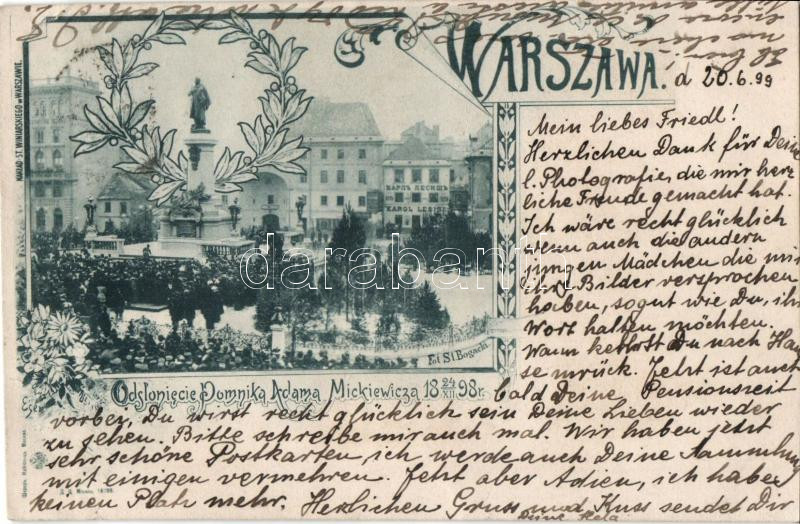 WARSZAWA.
d 20.6.99
NAKŁAD ST. WINIARSKIEGO W WARSZAWIE.
Mein liebes Friedl!
Herzlichen Dank für Deine
l. Photografie, die mir herz
liche Freude gemacht hat.
Ich wäre recht glücklich
wenn auch die andern
jungen Mädchen die mir
ihre Bilder versprochen
haben, sogut wie Du, ihr
Wort halten möchten.
Wann kehrst Du nach Hau
se zurück. Jetzt ist auch
bald Deine Pensionszeit
vorbei, Du wirst recht glücklich sein Deine Lieben wieder
zu sehen. Bitte schreibe mir auch mal. Wir haben jetzt
sehr schöne Postkarten, ich werde auch Deine Sammlung
mit einigen vermehren. Jetzt aber Adieu, ich habe
keinen Platz mehr. Herzlichen Gruss und Kuss sendet Dir
Deine Hela
КАРЛЪ ЛЕСИШЪ
KAROL LESISZ
darabanth.com
Fot St. Bogacki
Odsłonięcie Pomnika Adama Mickiewicza 18 24/XII 98 r.